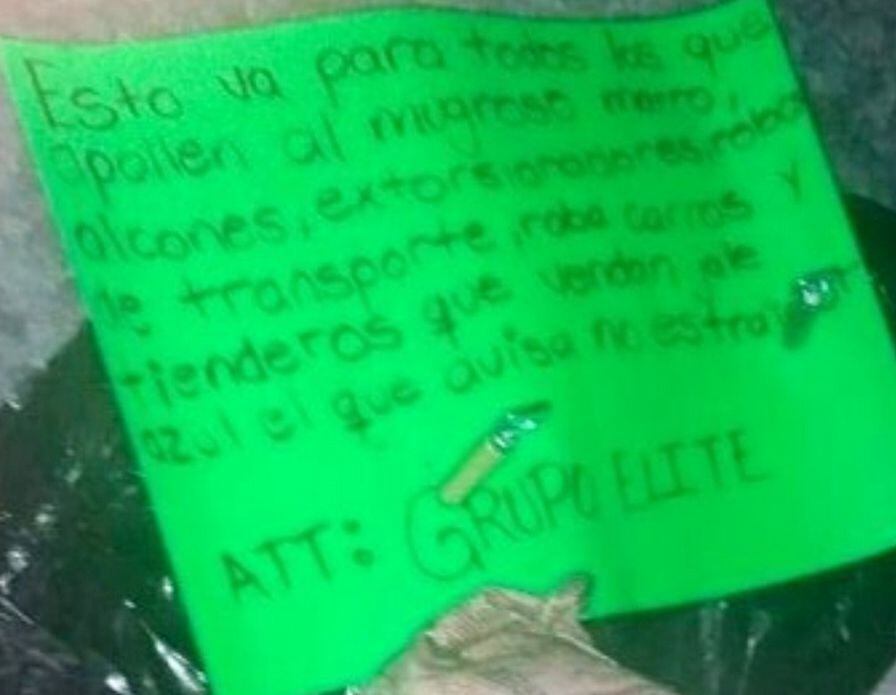 Esto va para todos los que
apollen al mugroso marro,
alcones, extorsionadores, roba
de transporte, roba carros y
tienderos que vendan de
azul el que avisa no es trai
ATT: GRUPO ELITE